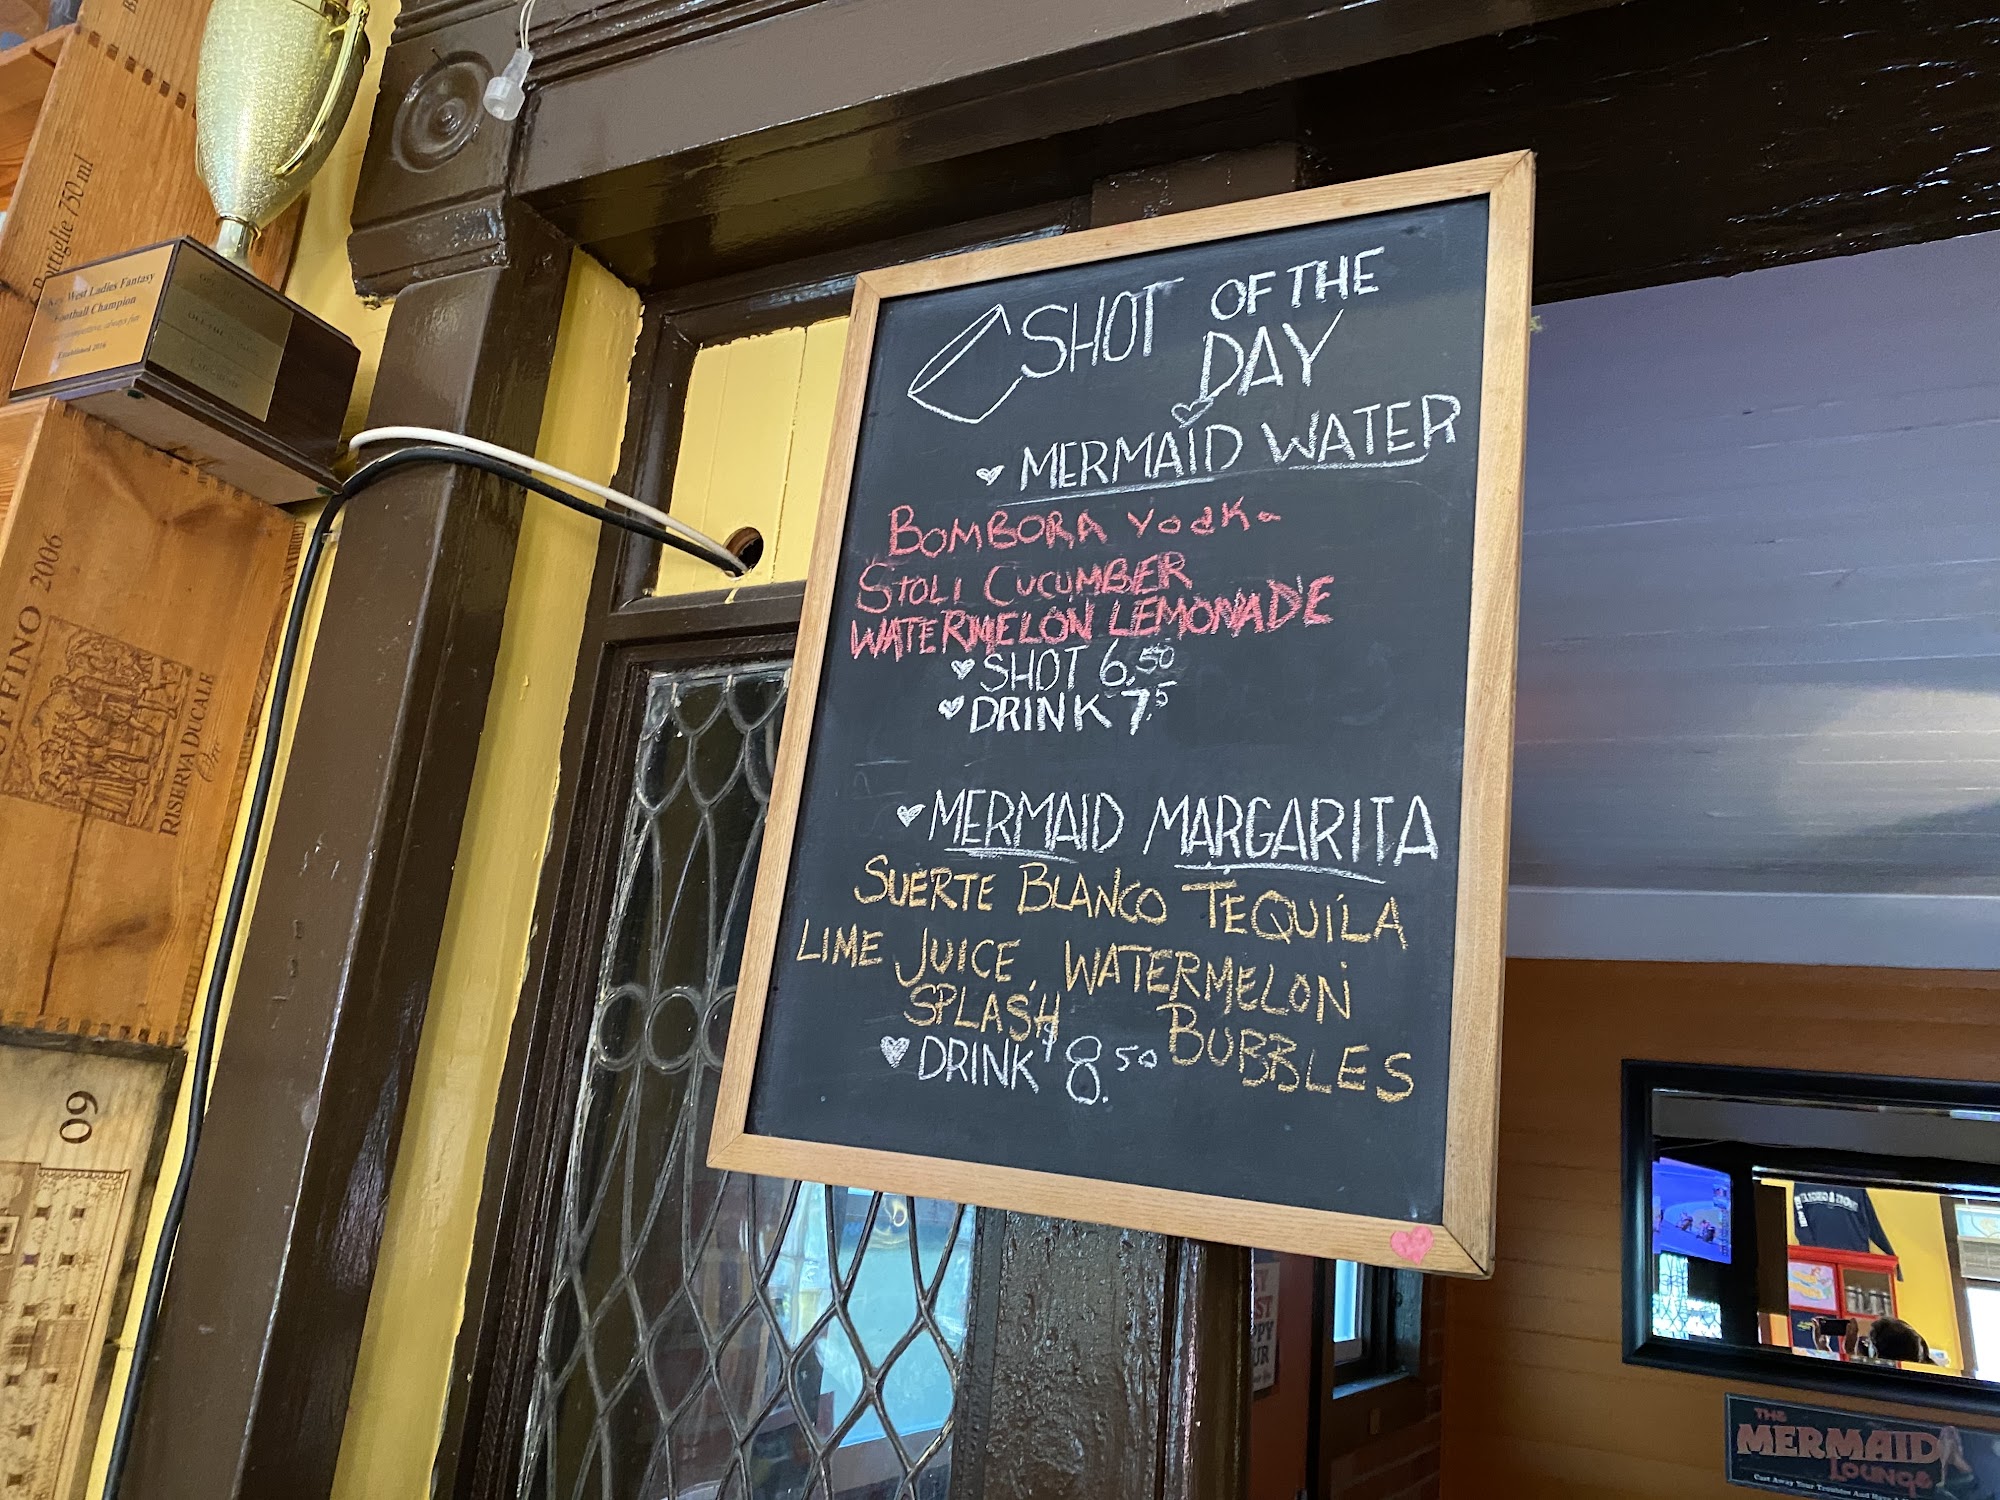 SHOT OF THE
DAY
MERMAID WATER
BOMBORA Vodka
STOLI CUCUMBER
WATERMELON LEMONADE
SHOT 6.50
DRINK 7.5
MERMAID MARGARITA
SUERTE BLANCO TEQUILA
LIME JUICE, WATERMELON
SPLASH BUBBLES
DRINK $8.50
Key West Ladies Fantasy
Football Champion
Established 2016
Bottiglie 750 ml
FFINO 2006
RISERVA DUCALE
Oro
09
THE
MERMAID
LOUNGE
Cast Away Your Troubles And